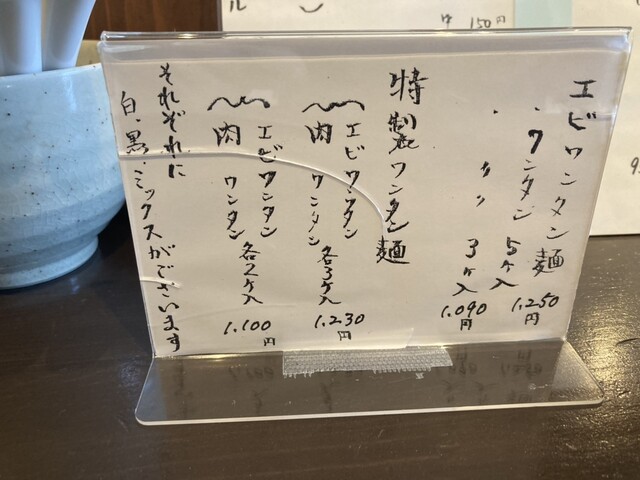 エビワンタン麺
・ワンタン 5ヶ入 1,250円
・〃〃 3ヶ入 1,090円
特製ワンタン麺
エビワンタン
肉ワンタン
各3ヶ入 1,230円
エビワンタン
肉ワンタン
各2ヶ入 1,100円
それぞれに
白・黒・ミックスがございます
ル
150円